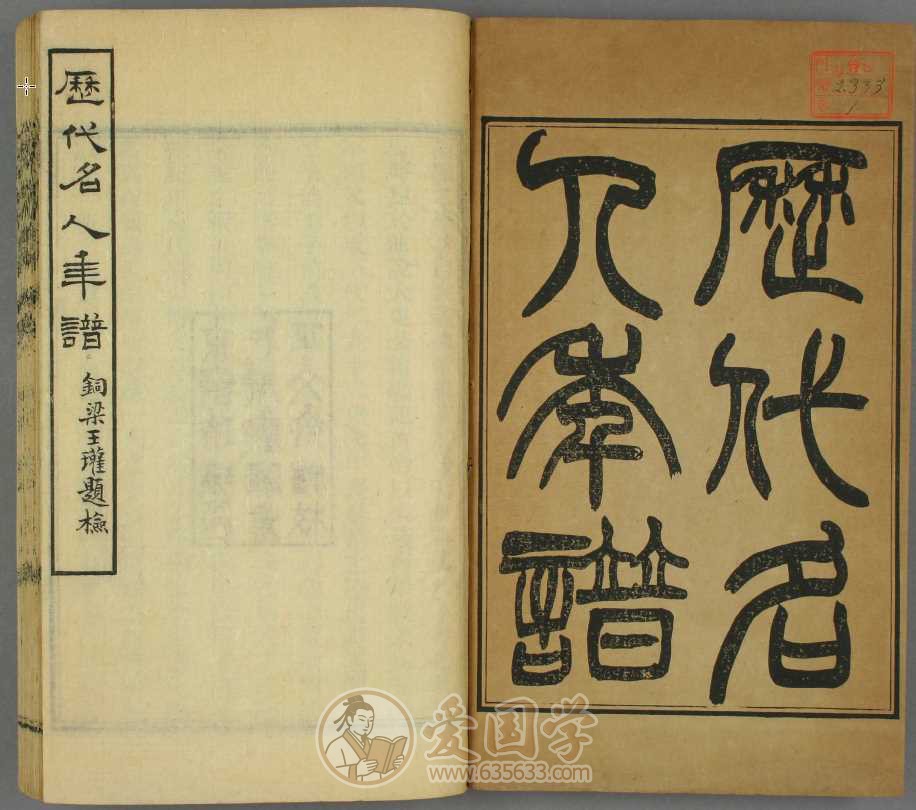 歷代名
人年譜
2333
1
歷代名人年譜
銅梁王瓘題檢
爱国学
www.635633.com